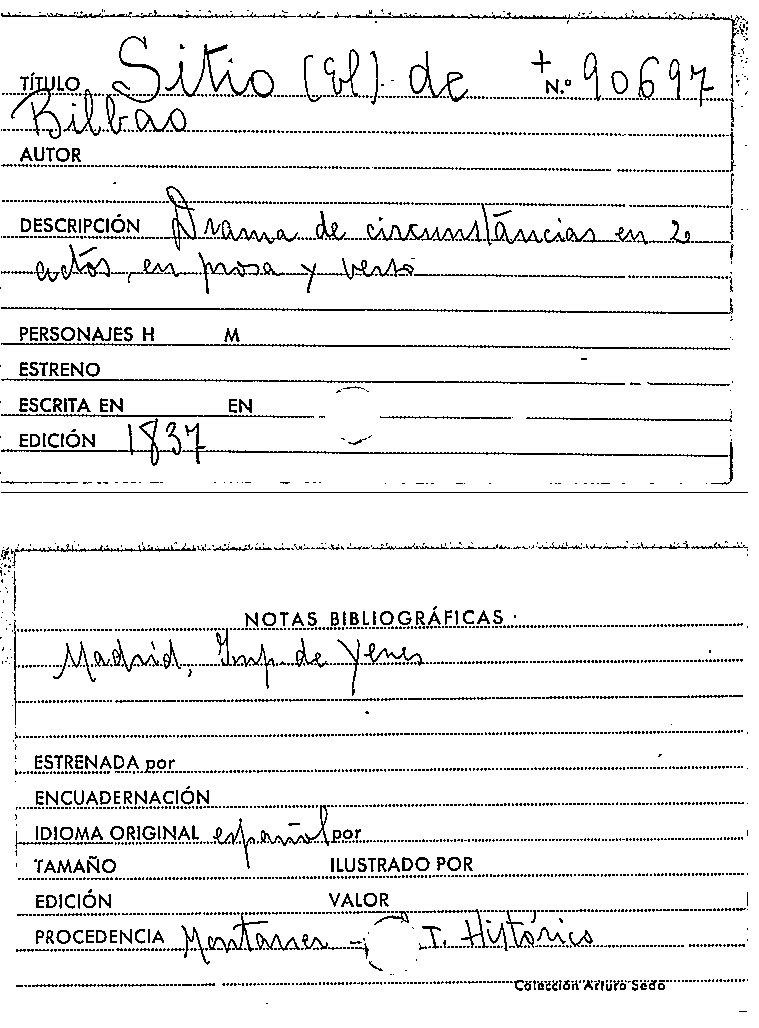 TÍTULO Sitio (El) de + N.º 90697
Bilbao
AUTOR
DESCRIPCIÓN Drama de circunstáncias en 2
actos, en prosa y verso
PERSONAJES H M
ESTRENO
ESCRITA EN EN
EDICIÓN 1837
NOTAS BIBLIOGRÁFICAS
Madrid, Imp. de Yenes
ESTRENADA por
ENCUADERNACIÓN
IDIOMA ORIGINAL español por
TAMAÑO ILUSTRADO POR
EDICIÓN VALOR
PROCEDENCIA Montaner - T. Histórico
Colección Arturo Sedó